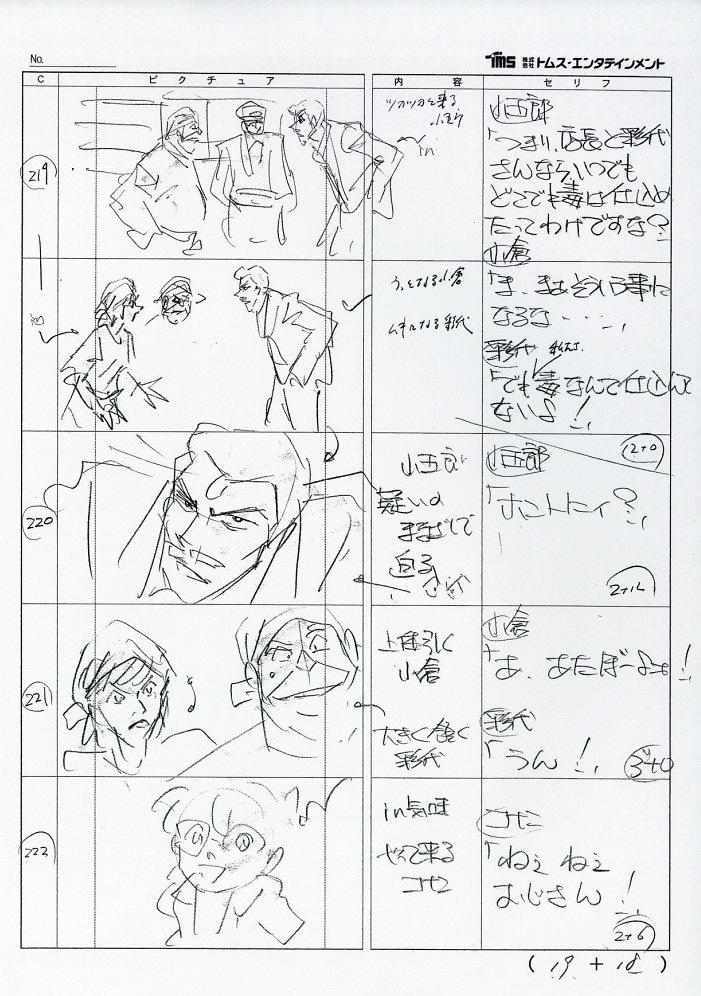 No.
TMS 株式会社 トムス・エンタテインメント
C ピクチュア 内容 セリフ
219
ツカツカと来る
小五郎
in
小五郎
「つまり、店長と彩代
さんなら、いつでも
どこでも毒は仕込め
たってわけですな?」
小倉
うっとなる小倉
ムキになる彩代
「ま、まぁそういう事に
なるな・・・」
彩代
「でも毒なんて仕込んで
ないよ!」
(12+0)
220
小五郎
疑いの
まなざしで
迫る
小五郎
「ホントにィ?」
2+12
221
上体引く
小倉
大きく頷く
彩代
小倉
「あ、あたぼーよォ!」
彩代
「うん!」
3+0
222
in気味
やって来る
コナン
コナン
「ねぇ ねぇ
おじさん!」
2+6
( 19 + 18 )